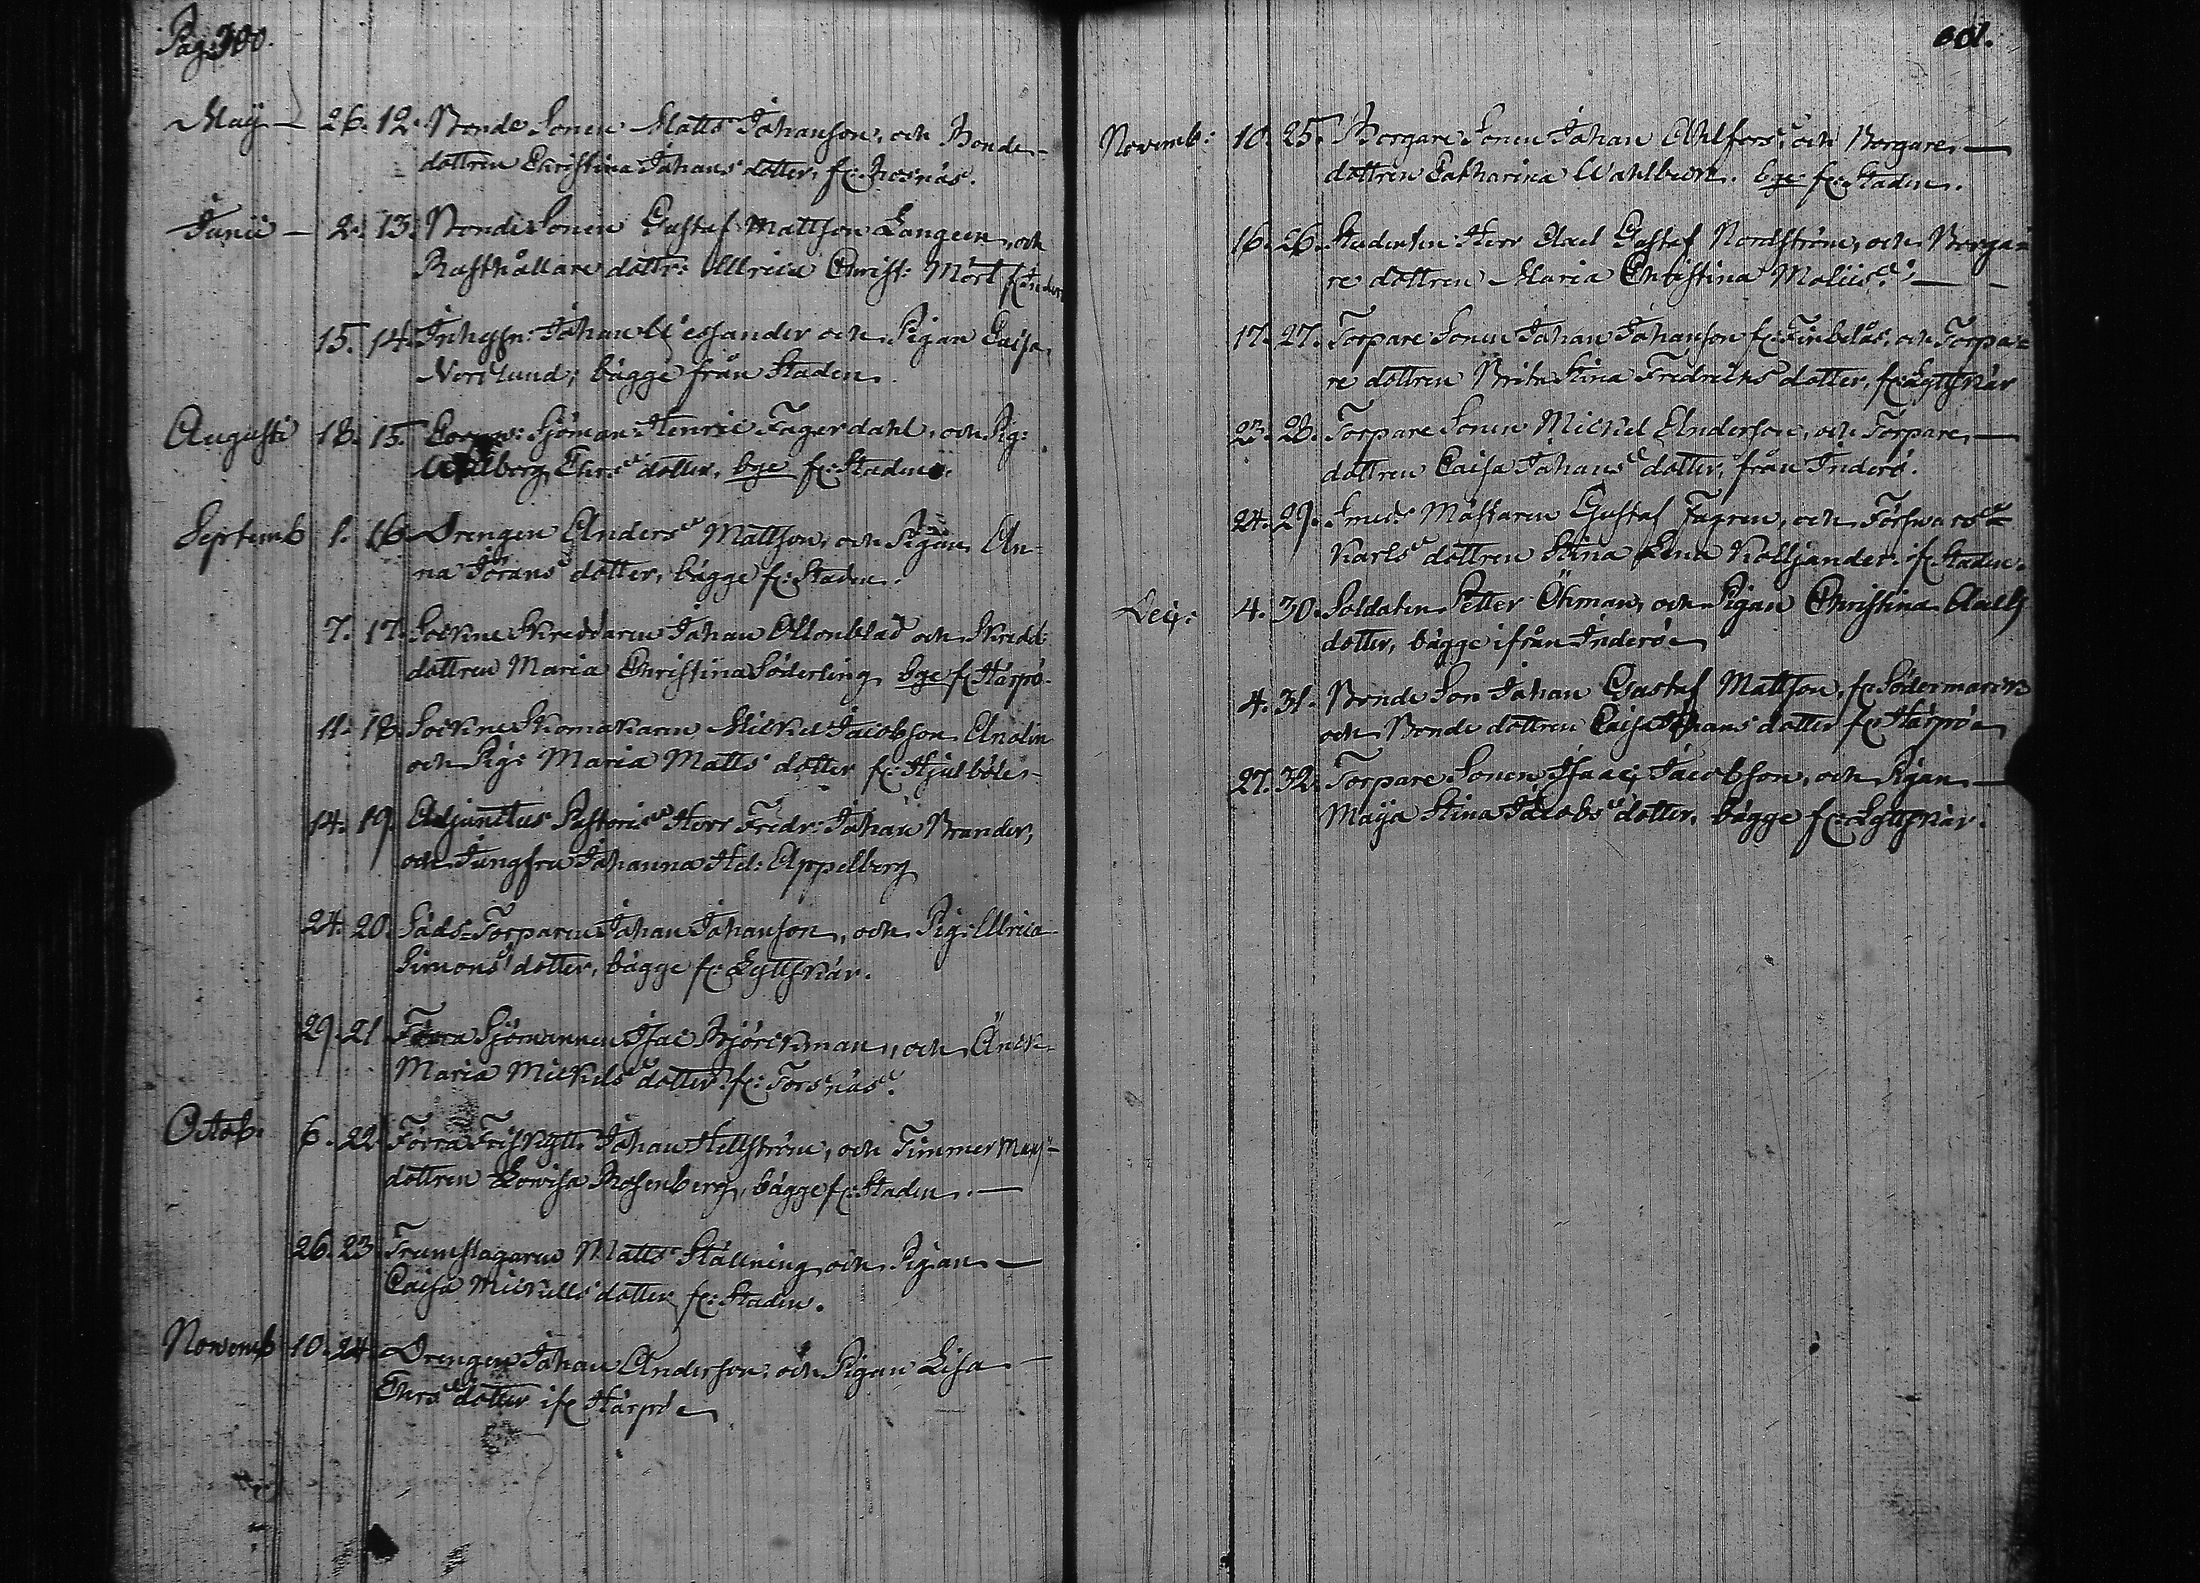 Pag: 300.
Maij — 26. 12. Bonde Sonen Matts Johanson, och Bonde-
dottren Christina Johans dotter, fr: Rosnäs.
Junii — 2. 13. Bonde Sonen Gustaf Mattson Langeen, och
Rusthållare dottr: Ullrica Christ: Mört fr: Inder
15. 14. Inhys: Johan Wessander och Pigan Caisa
Norrlund, bägge från Staden.
Augusti 18. 15. Sjöman Henric Fagerdahl, och Pig:
Ehrs dotter, bge fr: Staden.
Septemb 1. 16. Drengen Anders Mattson, och Pigan An-
na Jörans dotter, bägge fr: Staden.
7. 17. Sockne Skreddaren Johan Allonblad och Skredd:
dottren Maria Christina Söderling, bge fr: Härpö.
11. 18. Sockne Skomakaren Mickel Jacobson Anolin
och Pig: Maria Matts dotter fr: Hjulböle —
14. 19. Adjunctus Pastoris Herr Fredr: Johan Brander,
och Jungfru Johanna Hel: Appelberg
24. 20. Säds-Torparen Johan Johanson, och Pig: Ullrica
Simons dotter, bägge fr: Lyttskär.
29. 21 Förra Sjömannen Isac Björckman, och Änck.
Maria Mickels dotter fr: Torsnäs.
Octob: 6. 22 Förra Friskytt: Johan Hellström, och Timmer Mans-
dottren Lowisa Rosenberg, bägge fr: Staden. —
26. 23 Trumslagaren Matts Ställning, och Pigan —
Caisa Mickells dotter, fr: Staden.
Novemb 10. 24. Drengen Johan Anderson, och Pigan Lisa —
Ehrs dotter ifr Härpö
301.
Novemb: 10. 25. Borgare Sonen Johan Ahlfors, och Borgare —
dottren Catharina Wahlbeck. bge fr: Staden.
16. 26. Studenten Herr Axel Gustaf Nordström, och Borga=
re dottren Maria Christina Moliis. —
17. 27. Torpare Sonen Johan Johanson fr: Finbelås, och Torpa=
re dottren Brita Stina Fredricks dotter, fr: Lyttskär
23. 28. Torpare Sonen Mickel Anderson, och Torpare —
dottren Caisa Johans dotter, från Inderö.
24. 29. Smeds Mästaren Gustaf Fagren, och Förswars=
Karls dottren Stina Lena Kolljander. ifr: Staden.
Dec: 4. 30. Soldaten Petter Öhman, och Pigan Christina Axels
dotter, bägge ifrån Inderö
4. 31. Bonde Son Johan Gustaf Mattson, fr: Södermarck
och Bonde dottren Caisa Johans dotter fr: Härpö
27. 32. Torpare Sonen Isaac Jacobson, och Pigan —
Maija Stina Jacobs dotter, bägge fr: Lyttskär.